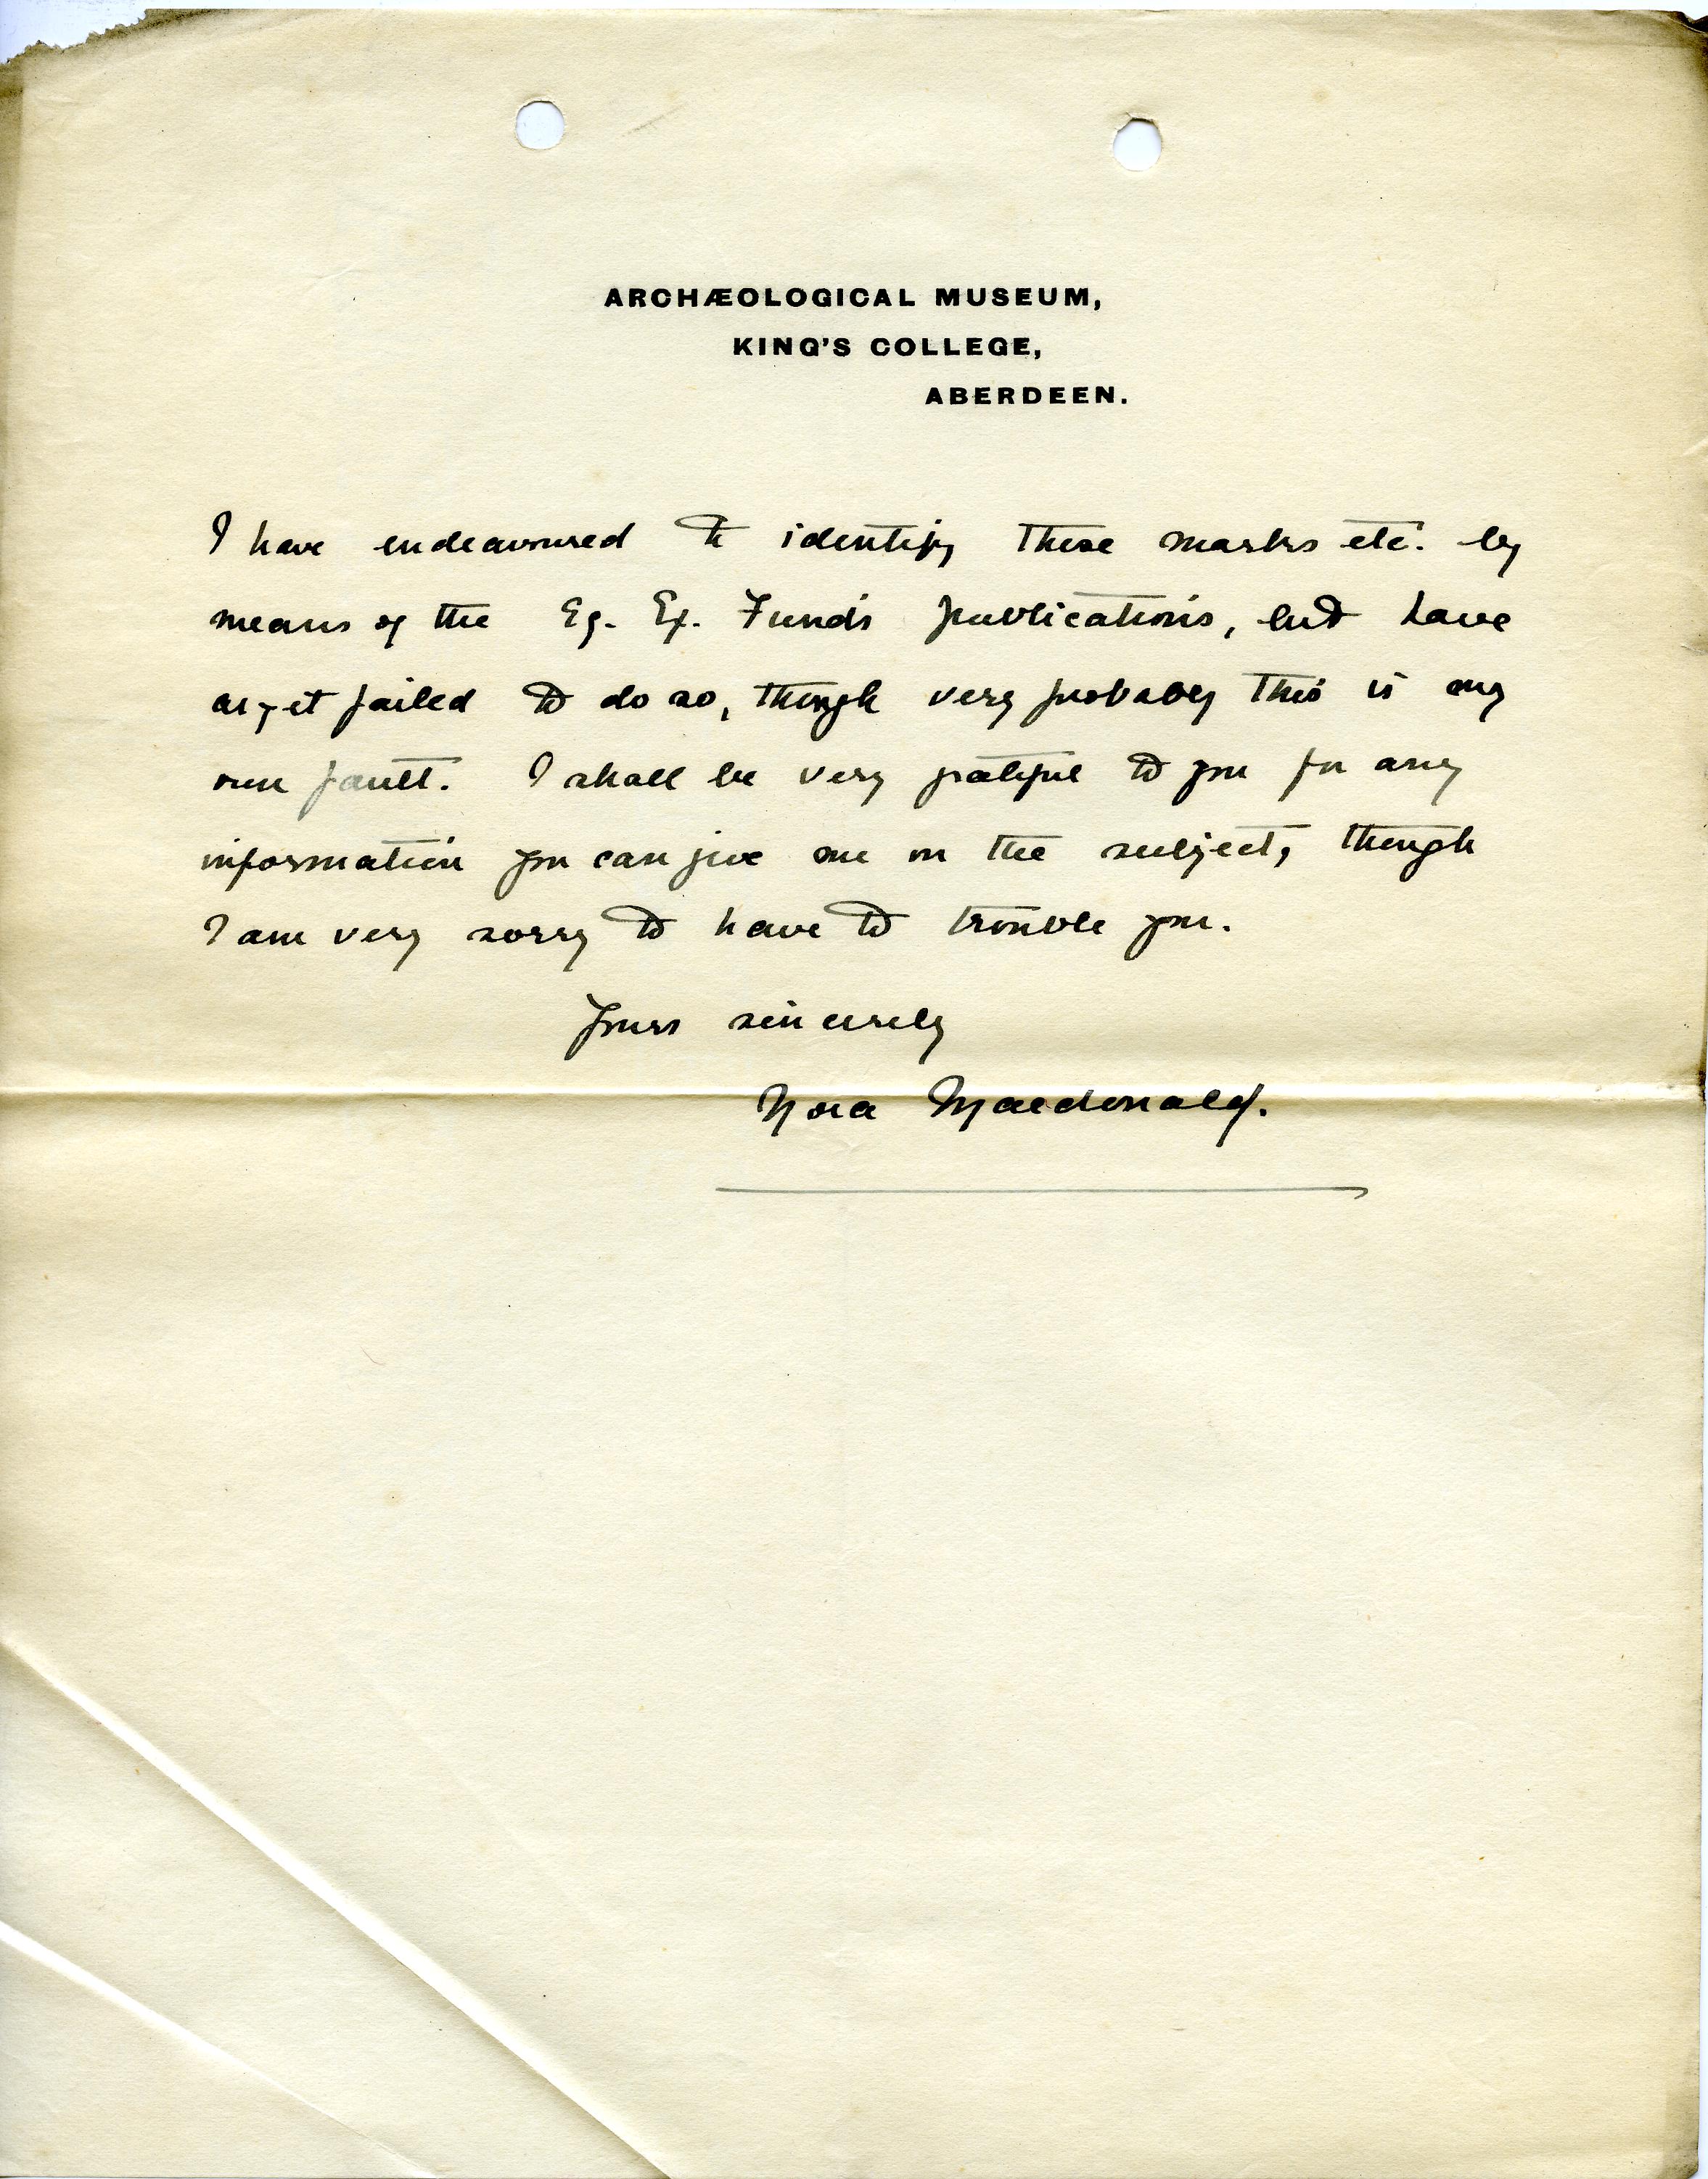 ARCHÆOLOGICAL MUSEUM,
KING'S COLLEGE,
ABERDEEN.
I have endeavoured to identify these marks etc. by
means of the Eg. Ex. Fund's publications, but have
as yet failed to do so, though very probably this is my
own fault. I shall be very grateful to you for any
information you can give me on the subject, though
I am very sorry to have to trouble you.
Yours sincerely
Nora Macdonald.